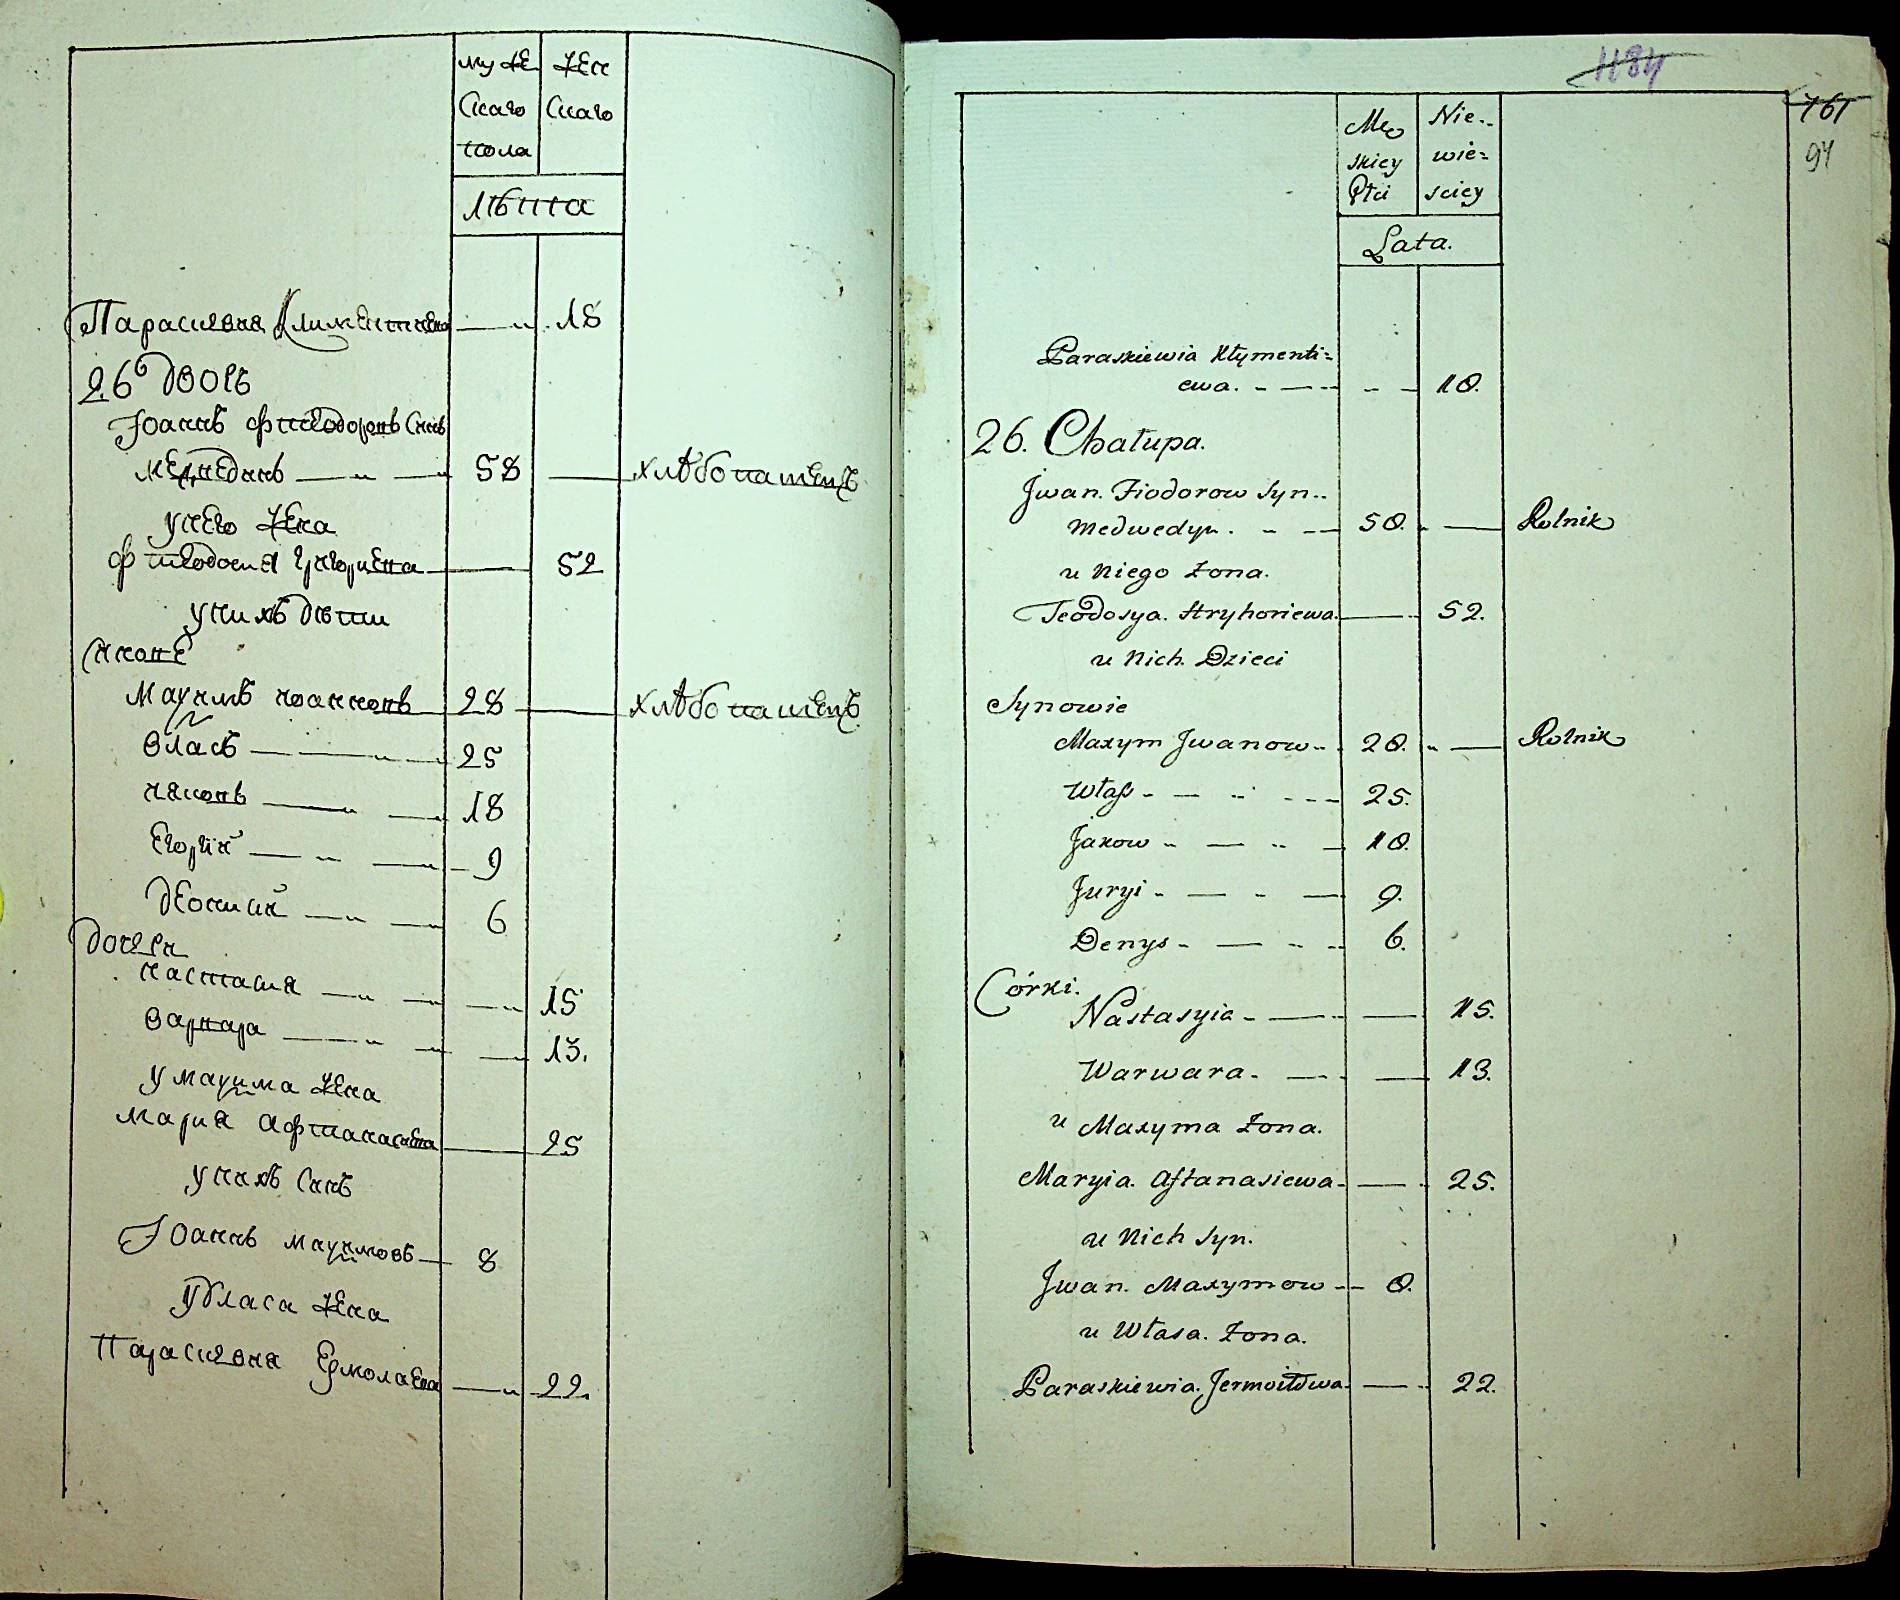 муже женскаго
скаго
пола
лѣта
Параскевия Климентиева 18
26 дворъ
Іоаннъ Фтеодоровъ синъ
Медвединъ 58 хлѣбопашецъ
у него жена
Фтеодосия Григориева 52
у нихъ дѣти
синове
Маѯимъ Іоанновъ 28 хлѣбопашецъ
Власъ 25
Яковъ 18
Егорій 9
Деонисий 6
дочери
Настасия 15
Варвара 13.
у Маѯима жена
Мария Афтанасиева 25
у нихъ синъ
Іоаннъ Маѯимовъ 8
у Власа жена
Параскевия Ермолаева 22.
1184
761
94
Mę Nie..
skiey wie=
Płci sciey
Lata.
Paraskiewia Kłymenti=
ewa. 18.
26. Chałupa.
Jwan. Fiodorow Syn..
Medwedyn. 58. Rolnik
u Niego Żona.
Teodosya. Hryhoriewa. 52.
u Nich. Dzieci
Synowie
Maxym Jwanow 28. Rolnik
Własz 25.
Jakow 18.
Juryi 9.
Denys 6.
Córki.
Nastasyia 15.
Warwara. 13.
u Maxyma Żona.
Maryia. Aftanasiewa. 25.
u Nich Syn.
Jwan. Maxymow 8.
u Własa. Żona.
Paraskiewia. Jermołowa. 22.